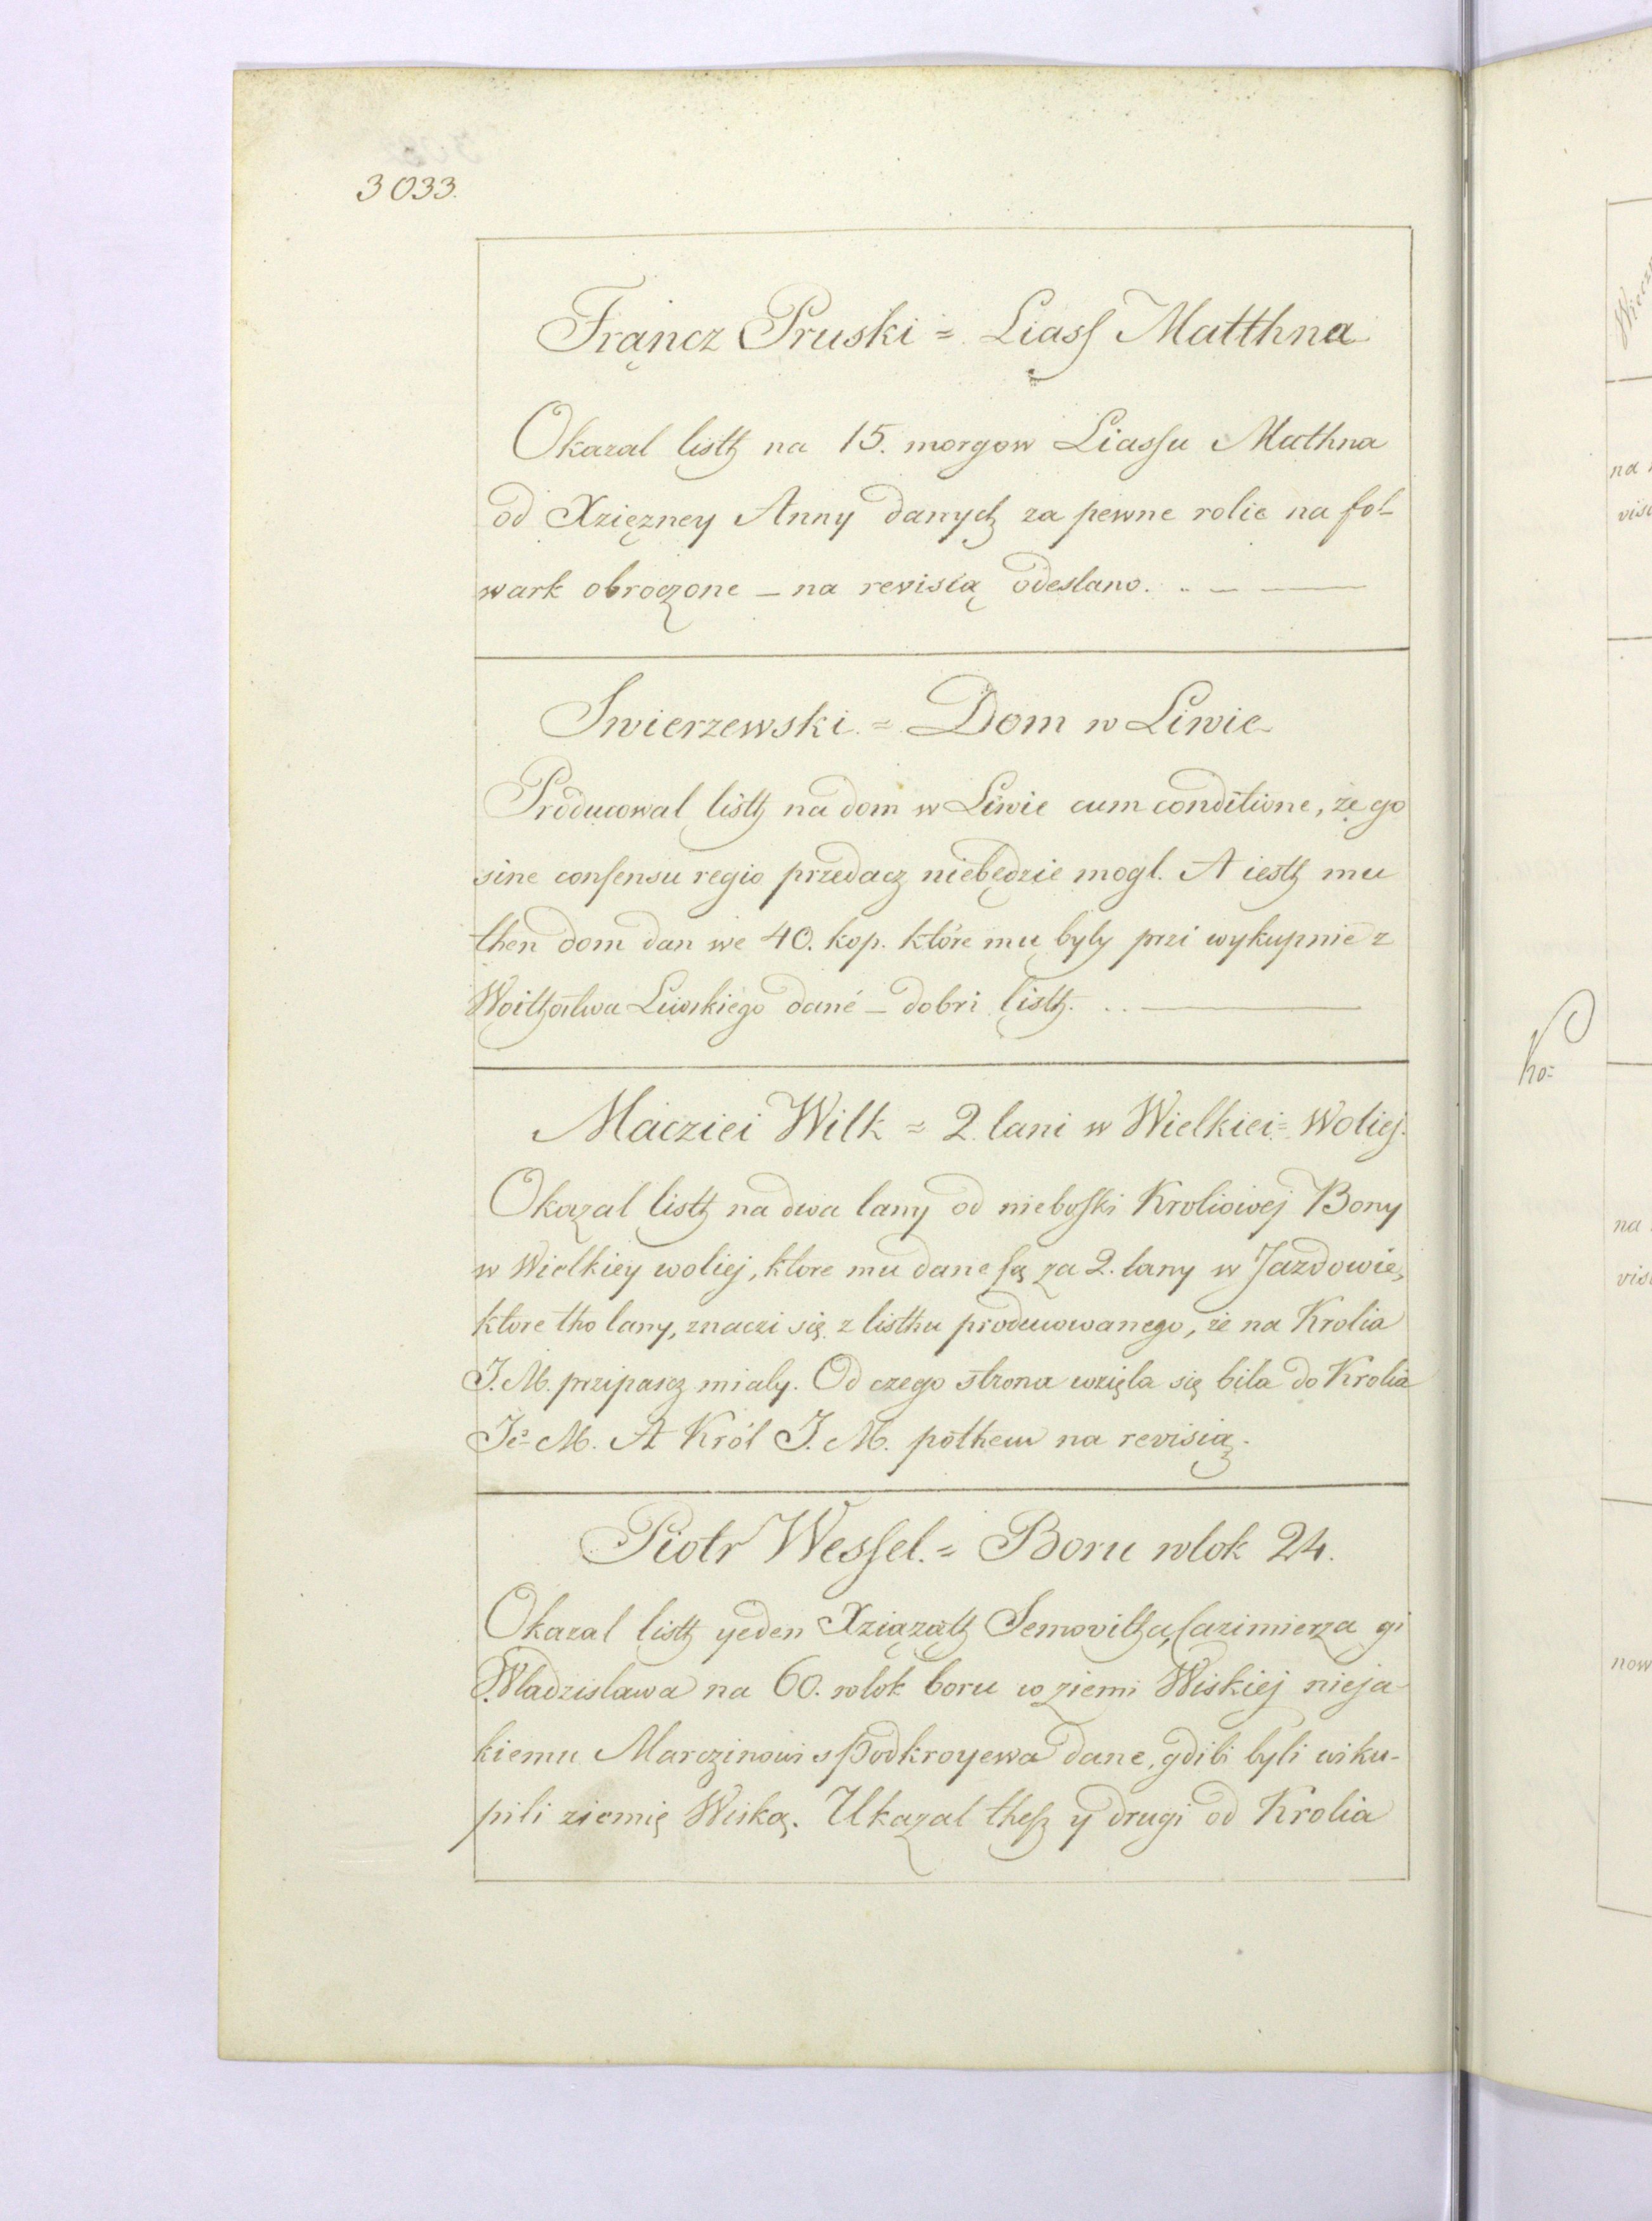 3033.
Frącz Pruski = Liasſ Matthna
Okazal listh na 15. morgow Liasſu Mathna
od Xzięzney Anny danych za pewne rolie na fol-
wark obroczone – na revisią odeslano.
Swierzewski = Dom w Liwie
Producowal listh na dom w Liwie cum conditione, że go
sine conſensu regio przedacz niebędzie mogl. A iesth mu
then dom dan we 40. kop. które mu byly przi wykupnie z
Woithostwa Liwskiego dané – dobri listh.
Macziei Wilk = 2 lani w Wielkiei = Woliej.
Okazal listh na dwa lany od niebosſki Krolioivej Bony
w Wielkiey woliej, ktore mu dane ſą za 2. lany w Jazdowie,
ktore tho lany, znaczi się z listhu producowanego, że na Krolia
J. M. przipascz mialy. Od czego strona wzięla się bila do Krolia
Je° M. A Król J. M. pothem na revisią.
Piotr Wesſel. = Boru wlok 24.
Okazal listh yeden Xziążąth Semovitha, Cazimierza gi
Wladzislawa na 60. wlok boru w ziemi Wiskiej nieja-
kiemu Marczinowi s Podkroyewa dane, gdibi byli wiku-
pili ziemię Wiską. Ukazal theſz y drugi od Krolia
ko=
na
visi
na
visi
now